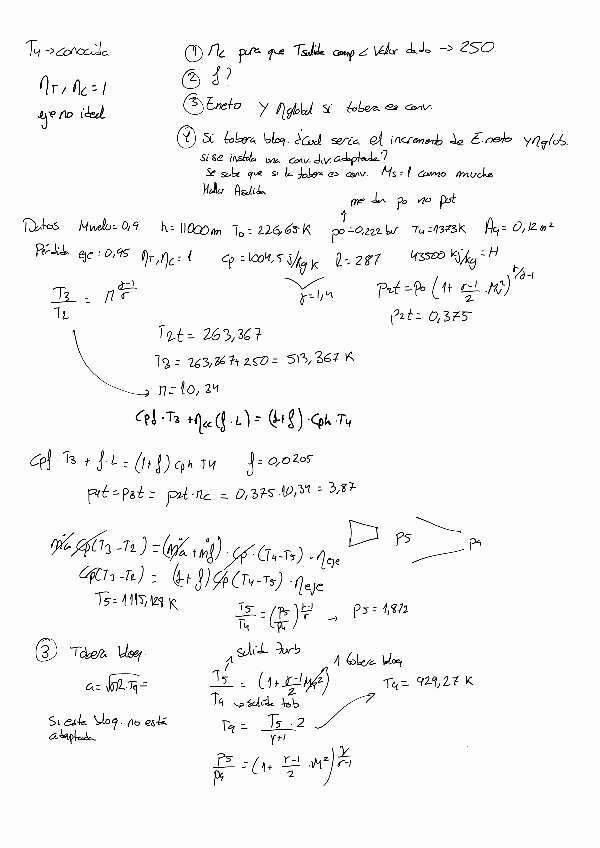 T4 → conocida
ηT, ηc = 1
eje no ideal
① πc para que Tsalida comp < Valor dado → 250.
② f?
③ Eneto y ηglobal si tobera es conv.
④ Si tobera bloq. ¿Cuál sería el incremento de E.neto y ηglob.
si se instala una conv.div. adaptada?
Se sabe que si la tobera es conv. Ms=1 como mucho
Hallar Asalida
me dan po no pot
Datos Mvuelo=0,9 h=11000m To=226,65K po=0,222 bar T4=1373K A9=0,12m²
Pérdida eje: 0,95 ηT,ηc=1 cp=1004,5 J/kgK R=287 43500 kJ/kg=H
γ=1,4
T3/T2 = π^(γ-1/γ)
p2t=po(1+ γ-1/2 ·M²)^γ/γ-1
p2t=0,375
T2t=263,367
T3=263,367+250=513,367 K
π=10,34
Cpf·T3+ηcc(f·L)=(1+f)·Cph·T4
Cpf·T3+f·L=(1+f)Cph T4 f=0,0205
p4t=p3t= p2t·πc = 0,375·10,34=3,87
ṁa Cp(T3-T2)=(ṁa+ṁf)·Cp·(T4-T5)·ηeje
Cp(T3-T2) = (1+f)Cp(T4-T5)·ηeje
p5 p9
T5=1115,129 K
T5/T4=(p5/p4)^γ-1/γ → p5=1,872
③ Tobera bloq.
salid turb
1 tobera bloq
a=√γR·T9=
T5/T9 = (1+γ-1/2 M9²)
T9=929,27 K
→ salida tob.
Si esta bloq. no está
adaptada
T9= T5·2/γ+1
p5/p9=(1+ γ-1/2 ·M²)^γ/γ-1